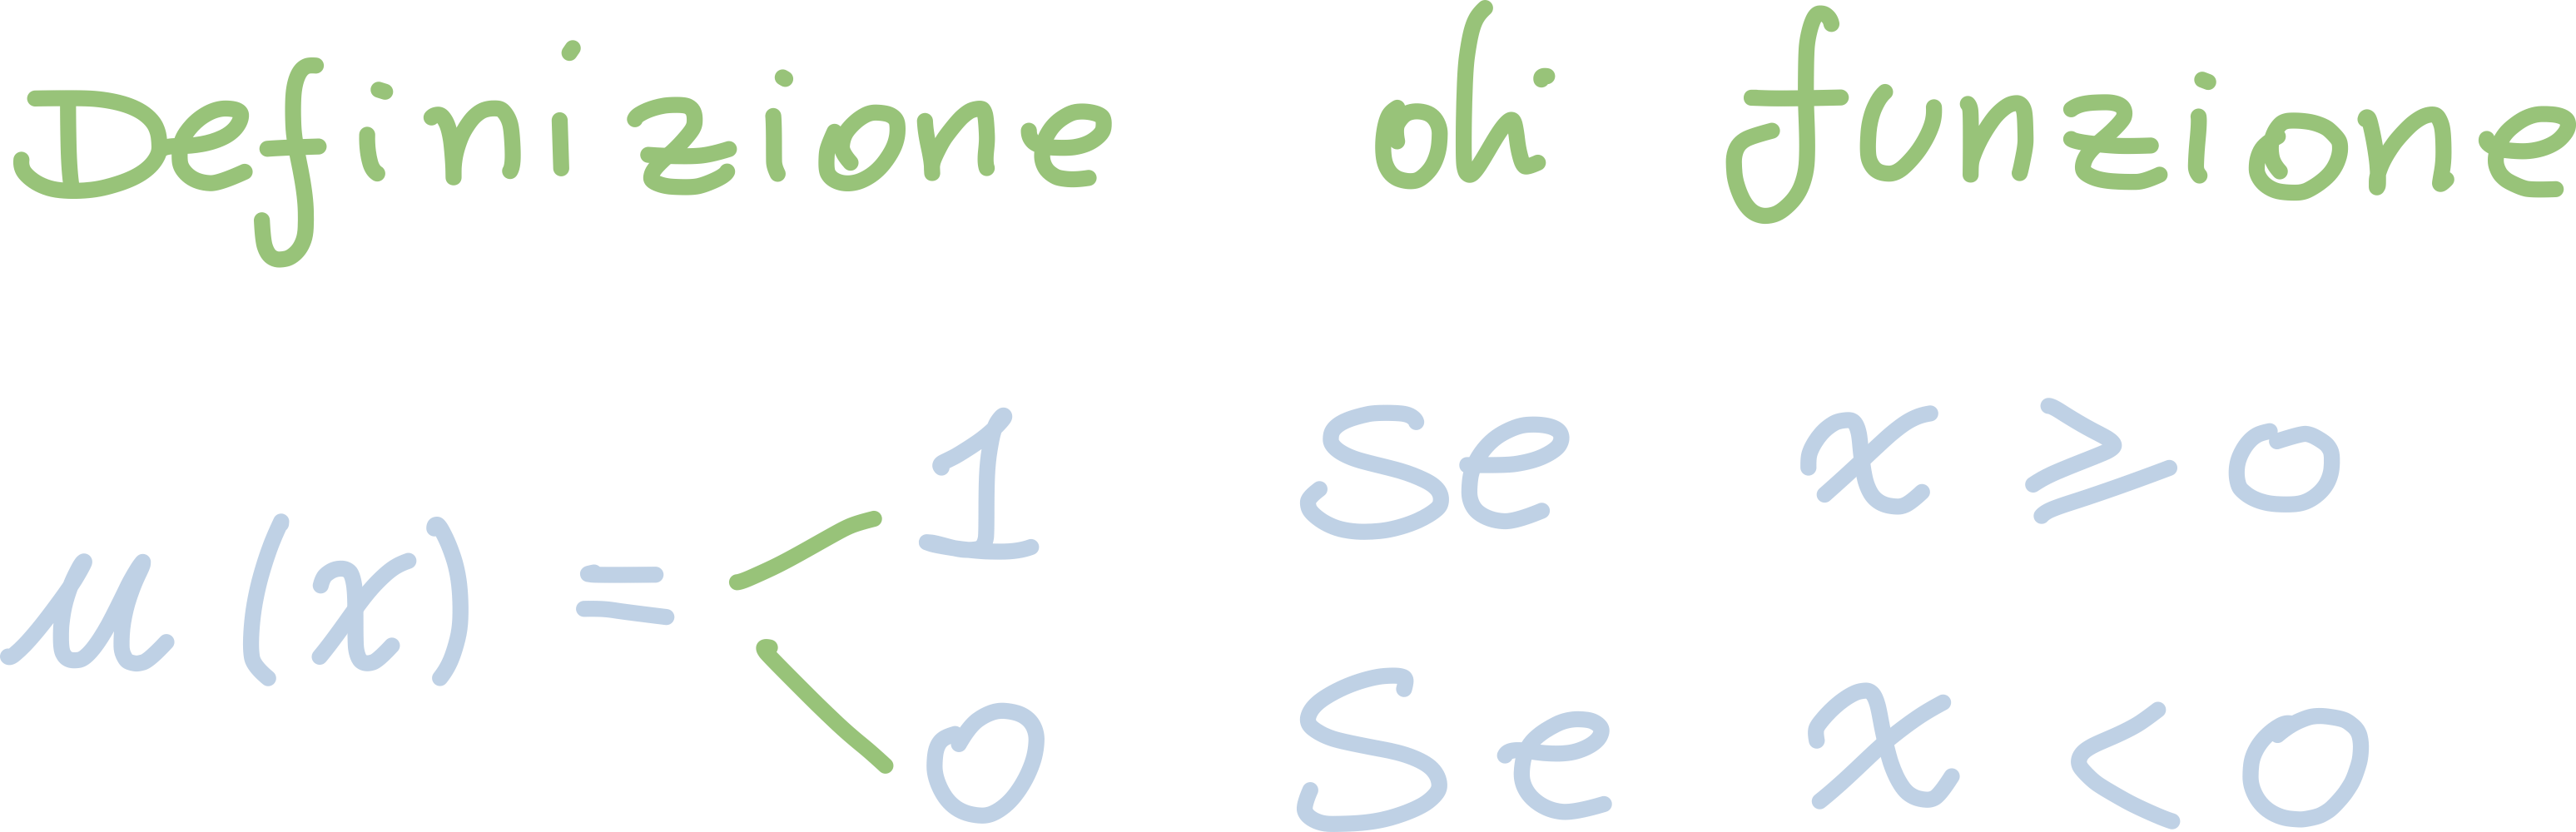 Definizione di funzione
u(x) = 1 se x ⩾ 0
0 se x < 0